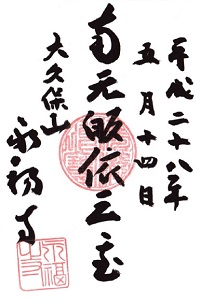 平成二十八年
五月十四日
南无皈依三宝
大久保山
永福寺